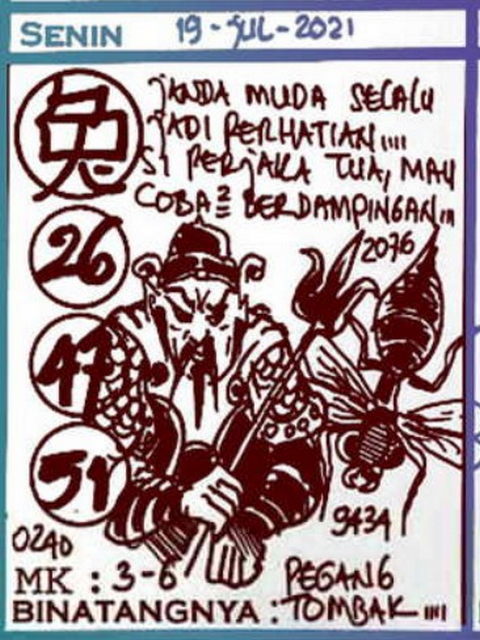 SENIN 19-JUL-2021
兔
JANDA MUDA SELALU
JADI PERHATIAN....
SI PERJAKA TUA, MAU
COBA2 BERDAMPINGAN...
26
2076
47
51
9434
0240
MK : 3-6 PEGANG
BINATANGNYA : TOMBAK....